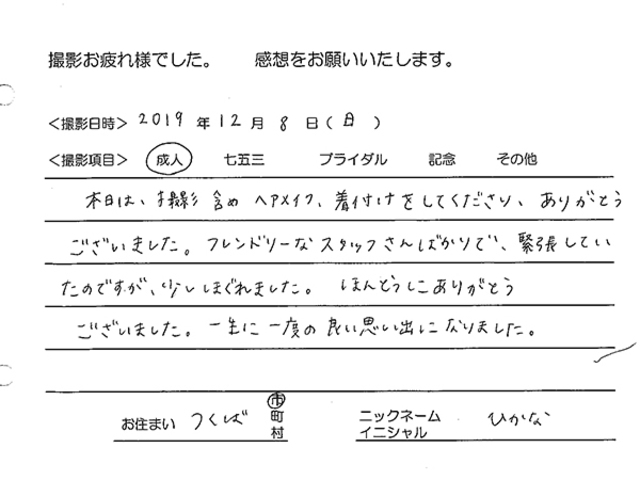 撮影お疲れ様でした。 感想をお願いいたします。
<撮影日時> 2019 年 12 月 8 日(日)
<撮影項目> 成人 七五三 ブライダル 記念 その他
本日は、撮影含めヘアメイク、着付けをしてくださり、ありがとう
ございました。フレンドリーなスタッフさんばかりで、緊張してい
たのですが、少しほぐれました。 ほんとうにありがとう
ございました。一生に一度の良い思い出になりました。
お住まい つくば 市町村 ニックネーム イニシャル ひかな